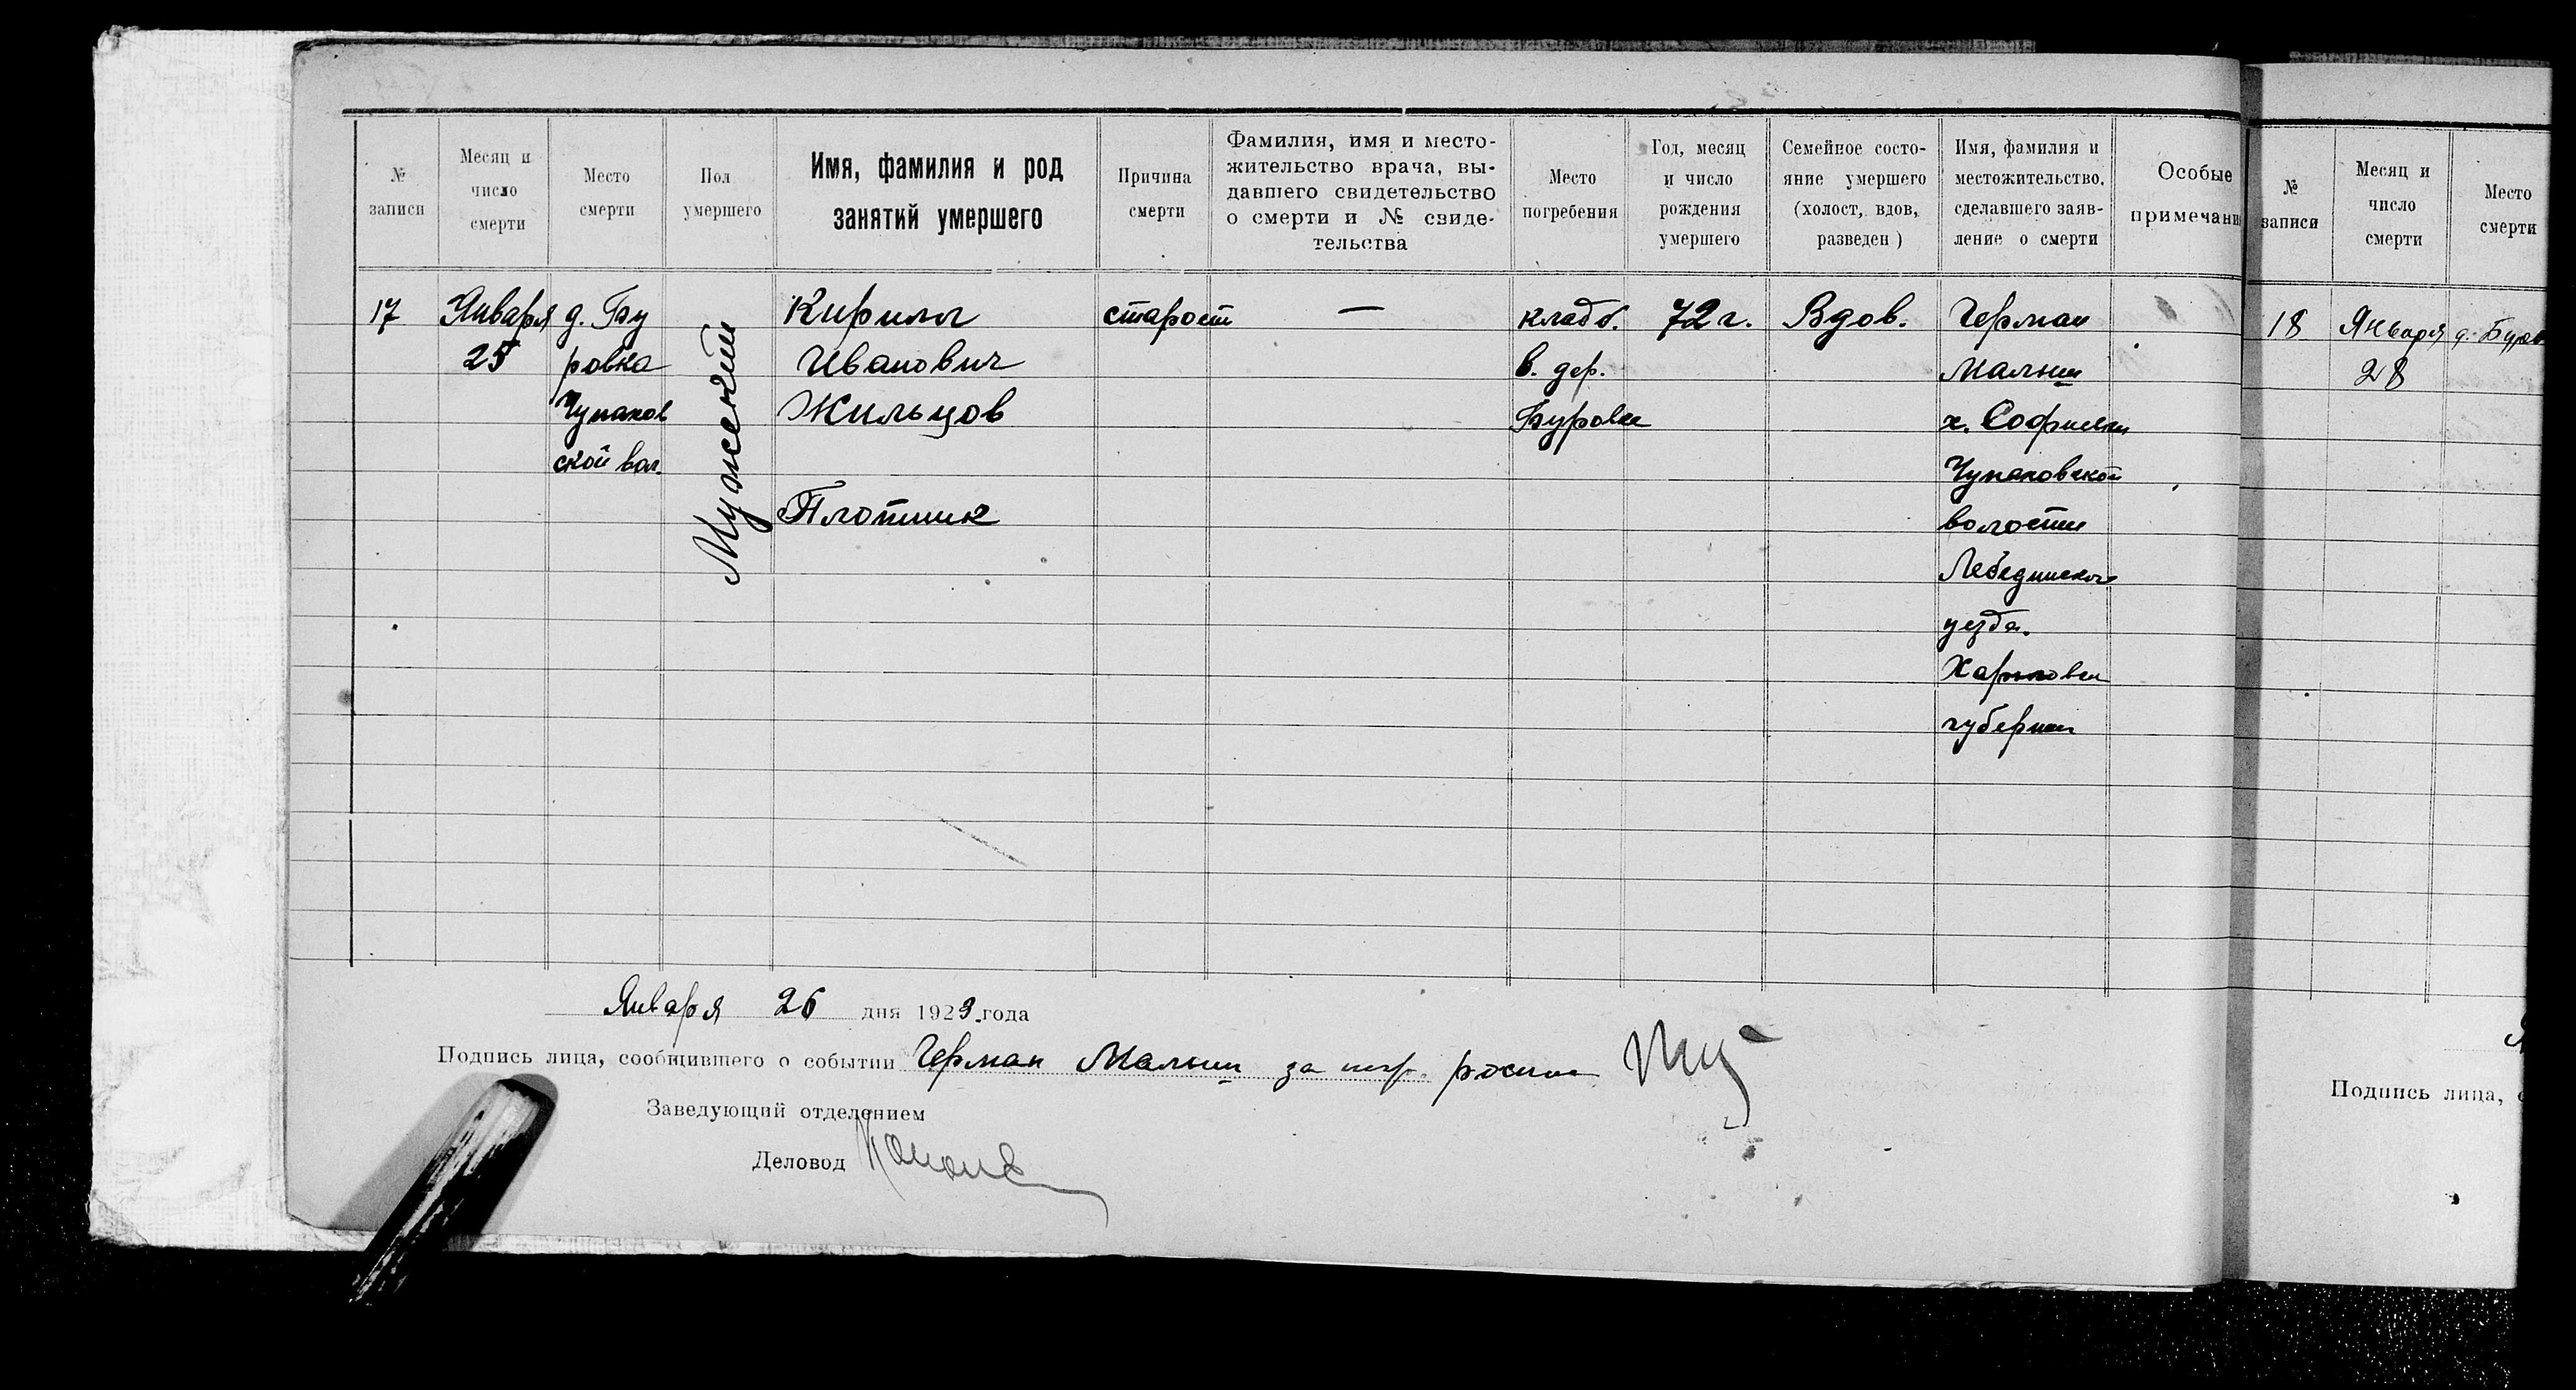 № записи
Месяц и число смерти
Место смерти
Пол умершего
Имя, фамилия и род занятий умершего
Причина смерти
Фамилия, имя и место-
жительство врача, вы-
давшего свидетельство
о смерти и № свиде-
тельства
Место погребения
Год, месяц и число рождения умершего
Семейное состо-
яние умершего
(холост, вдов,
разведен)
Имя, фамилия и
местожительство,
сделавшего заяв-
ление о смерти
Особые
примечани
17
Января
25
д. Бу
ровка
Чупахов
ской вол.
Мужской
Кирилл
Иванович
Жильцов
Плотник
старост
—
кладб.
в. дер.
Буровке
72 г.
Вдов.
Герман
Малыш
х. Софиевки
Чупаховской
волости
Лебединского
уезда.
Харьковск
губернии
Января 26 дня 1923 года
Подпись лица, сообщившего о событии Герман Малыш за негр. росписа
Заведующий отделением
Деловод
№ записи
Месяц и число смерти
Место смерти
18
Января
28
д. Буров
Подпись лица,